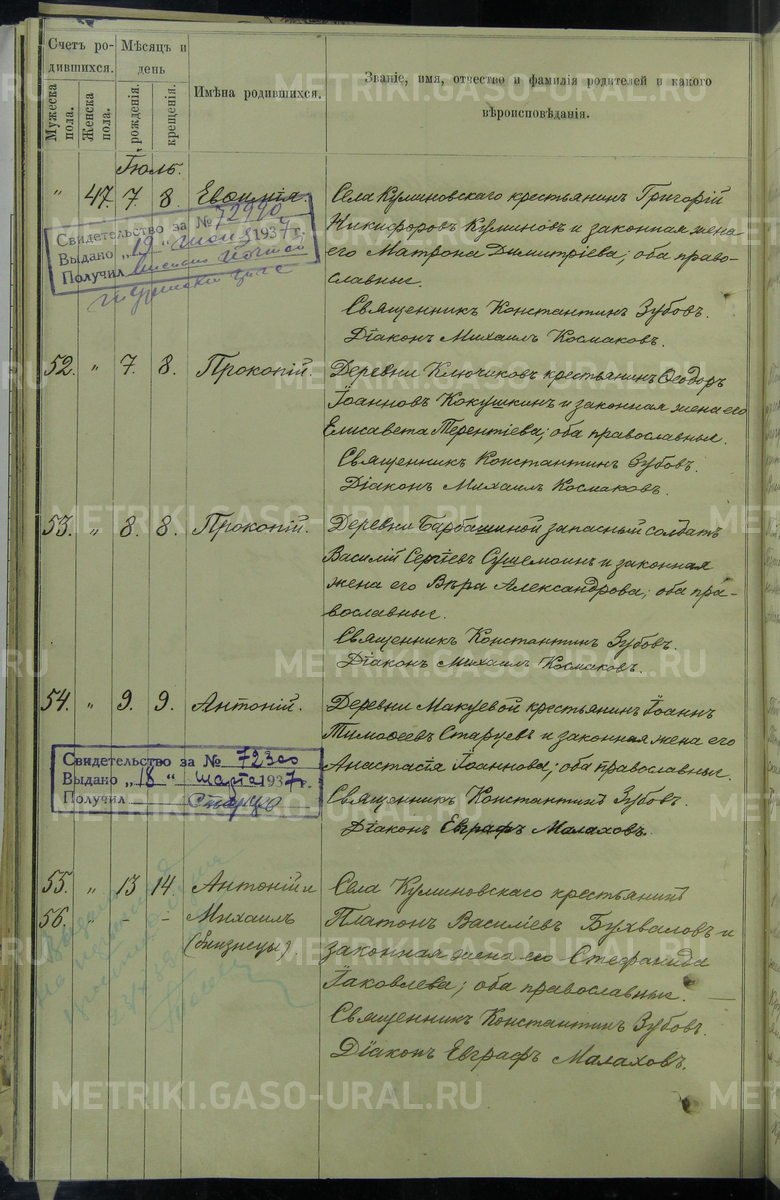 Счетъ ро-
дившихся.
Мѣсяцъ и
день
Мужеска пола.
Женска пола.
рожденія.
крещенія.
Имѣна родившихся.
Званіе, имя, отвество и фамилія родителей и какого
вѣроисповѣданія.
Іюль.
" 47. 7 8. Евѳимія. Села Куминовскаго крестьянинъ Григорій
Никифоровъ Куминовъ и законная жена
его Матрона Димитріева; оба право-
славные.
Священникъ Константинъ Зубовъ.
Діаконъ Михаилъ Космаковъ.
Свидетельство за № 72990
Выдано „19" 1937 г.
Получил
52. " 7. 8. Прокопій. Деревни Ключиковъ крестьянинъ Ѳеодоръ
Іоанновъ Кокушкинъ и законная жена его
Елисавета Терентіева; оба православные.
Священникъ Константинъ Зубовъ.
Діаконъ Михаилъ Космаковъ.
53. " 8. 8. Прокопій. Деревни Барбашиной запасный солдатъ
Василій Сергіевъ и законная
жена его Вѣра Александрова; оба пра-
вославные.
Священникъ Константинъ Зубовъ.
Діаконъ Михаилъ Космаковъ.
54. " 9. 9. Антоній. Деревни Макуевой крестьянинъ Іоаннъ
Тимоѳеевъ Старуевъ и законная жена его
Анастасія Іоаннова; оба православные.
Священникъ Константинъ Зубовъ.
Діаконъ Евграфъ Малаховъ.
Свидетельство за № 72300
Выдано „18" марта 1937 г.
Получил
55. " 13 14. Антоній и Села Куминовскаго крестьянинъ
56. " - - Михаилъ Платонъ Василіевъ Бухваловъ и
(близнецы) законная жена его Стефанида
Іаковлева; оба православные.
Священникъ Константинъ Зубовъ.
Діаконъ Евграфъ Малаховъ.
METRIKI.GASO-URAL.RU